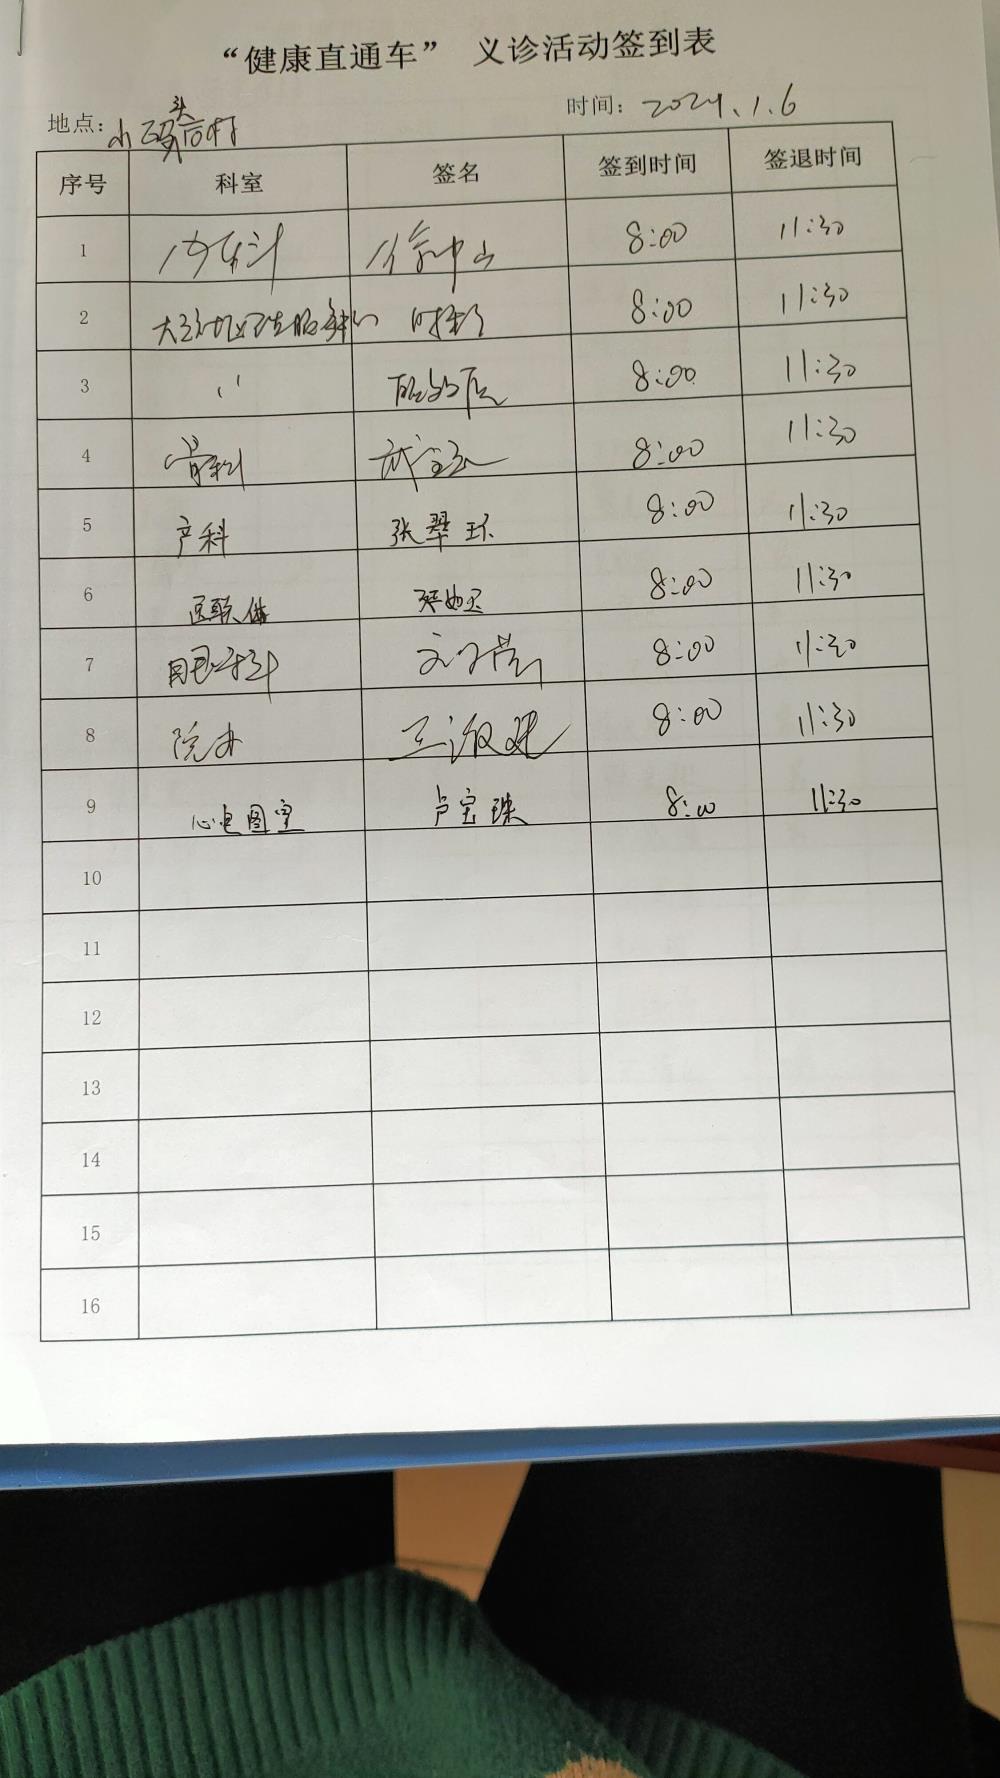 “健康直通车” 义诊活动签到表
地点: 小码头后村 时间: 2024.1.6
序号 科室 签名 签到时间 签退时间
1 8:00 11:30
2 8:00 11:30
3 〃 8:00 11:30
4 骨科 8:00 11:30
5 产科 张翠环 8:00 11:30
6 医联体 8:00 11:30
7 8:00 11:30
8 院办 8:00 11:30
9 心电图室 卢宝珠 8:00 11:30
10
11
12
13
14
15
16